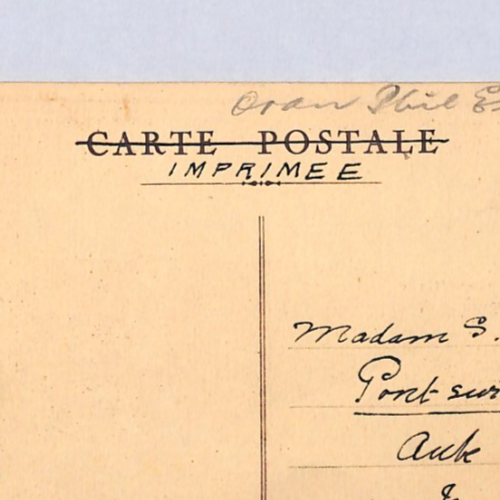 Oran Phil
CARTE POSTALE
IMPRIMEE
Madam S.
Pont-sur
Aube